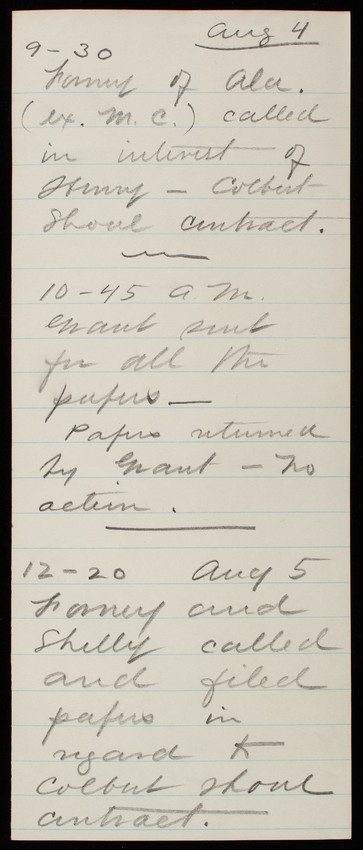 Aug 4
9-30
Forney of Ala.
(ex. M. C.) called
in interest of
- Colbert
Shoal contract.
10-45 a.m.
Grant sent
for all the
papers -
Papers returned
by Grant - no
action.
12-20 Aug 5
Forney and
Shelly called
and filed
papers in
regard to
Colbert Shoal
contract.